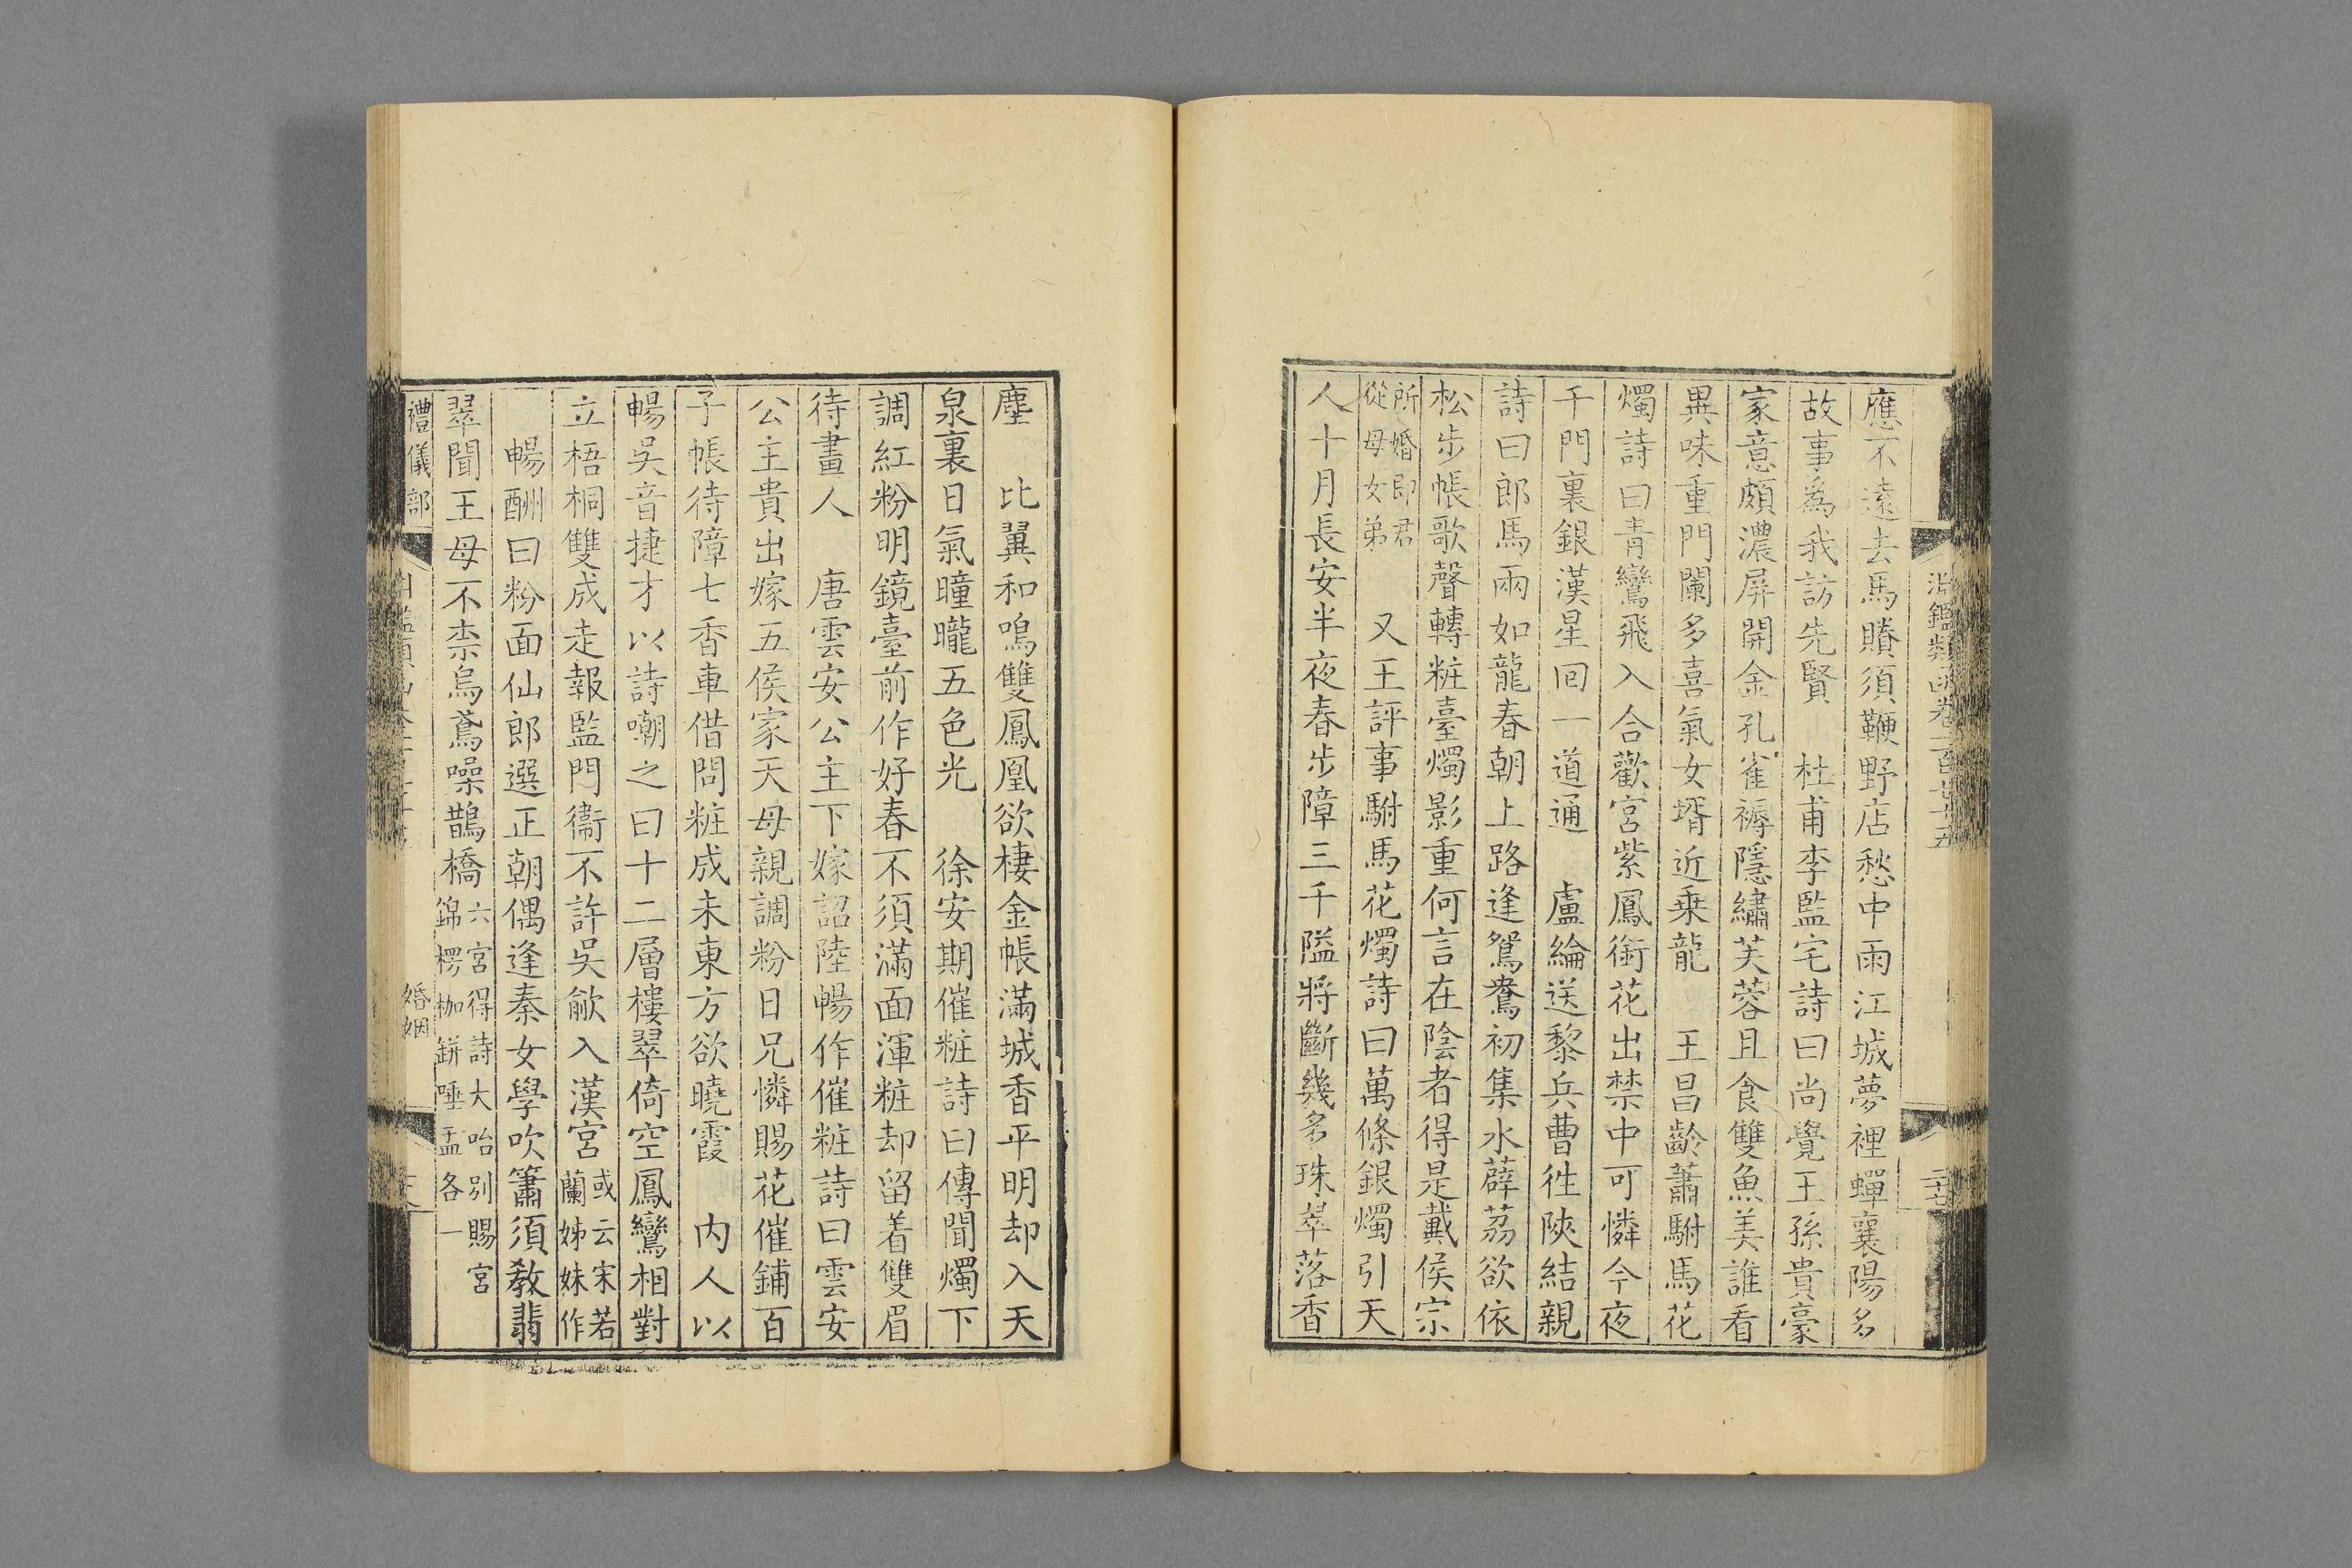 淵鑑類函卷一百七十五
應不遠去馬賸須鞭野店愁中雨江城夢裡蟬襄陽多
故事爲我訪先賢　杜甫李監宅詩曰尚覺王孫貴豪
家意頗濃屏開金孔雀褥隱繡芙蓉且食雙魚美誰看
異味重門闌多喜氣女壻近乗龍　王昌齡蕭駙馬花
燭詩曰青鸞飛入合歡宮紫鳳銜花出禁中可憐今夜
千門裏銀漢星回一道通　盧綸送黎兵曹徃陝結親
詩曰郎馬兩如龍春朝上路逢鴛鴦初集水薜荔欲依
松步帳歌聲轉粧臺燭影重何言在陰者得是戴侯宗
所婚即君
從母女弟
又王評事駙馬花燭詩曰萬條銀燭引天
人十月長安半夜春步障三千隘將斷幾多珠翠落香
塵　比翼和鳴雙鳳凰欲棲金帳滿城香平明却入天
泉裏日氣曈曨五色光　徐安期催粧詩曰傳聞燭下
調紅粉明鏡臺前作好春不須滿面渾粧却留着雙眉
待畫人　唐雲安公主下嫁詔陸暢作催粧詩曰雲安
公主貴出嫁五侯家天母親調粉日兄憐賜花催鋪百
子帳待障七香車借問粧成未東方欲曉霞　内人以
暢吳音捷才以詩嘲之曰十二層樓翠倚空鳳鸞相對
立梧桐雙成走報監門衞不許吳歈入漢宮
或云宋若
蘭姊妹作
暢酬曰粉面仙郎選正朝偶逢秦女學吹簫須教翡
翠聞王母不柰烏鳶噪鵲橋
六宮得詩大咍別賜宮
錦楞枷鉼唾盂各一
禮儀部
婚姻